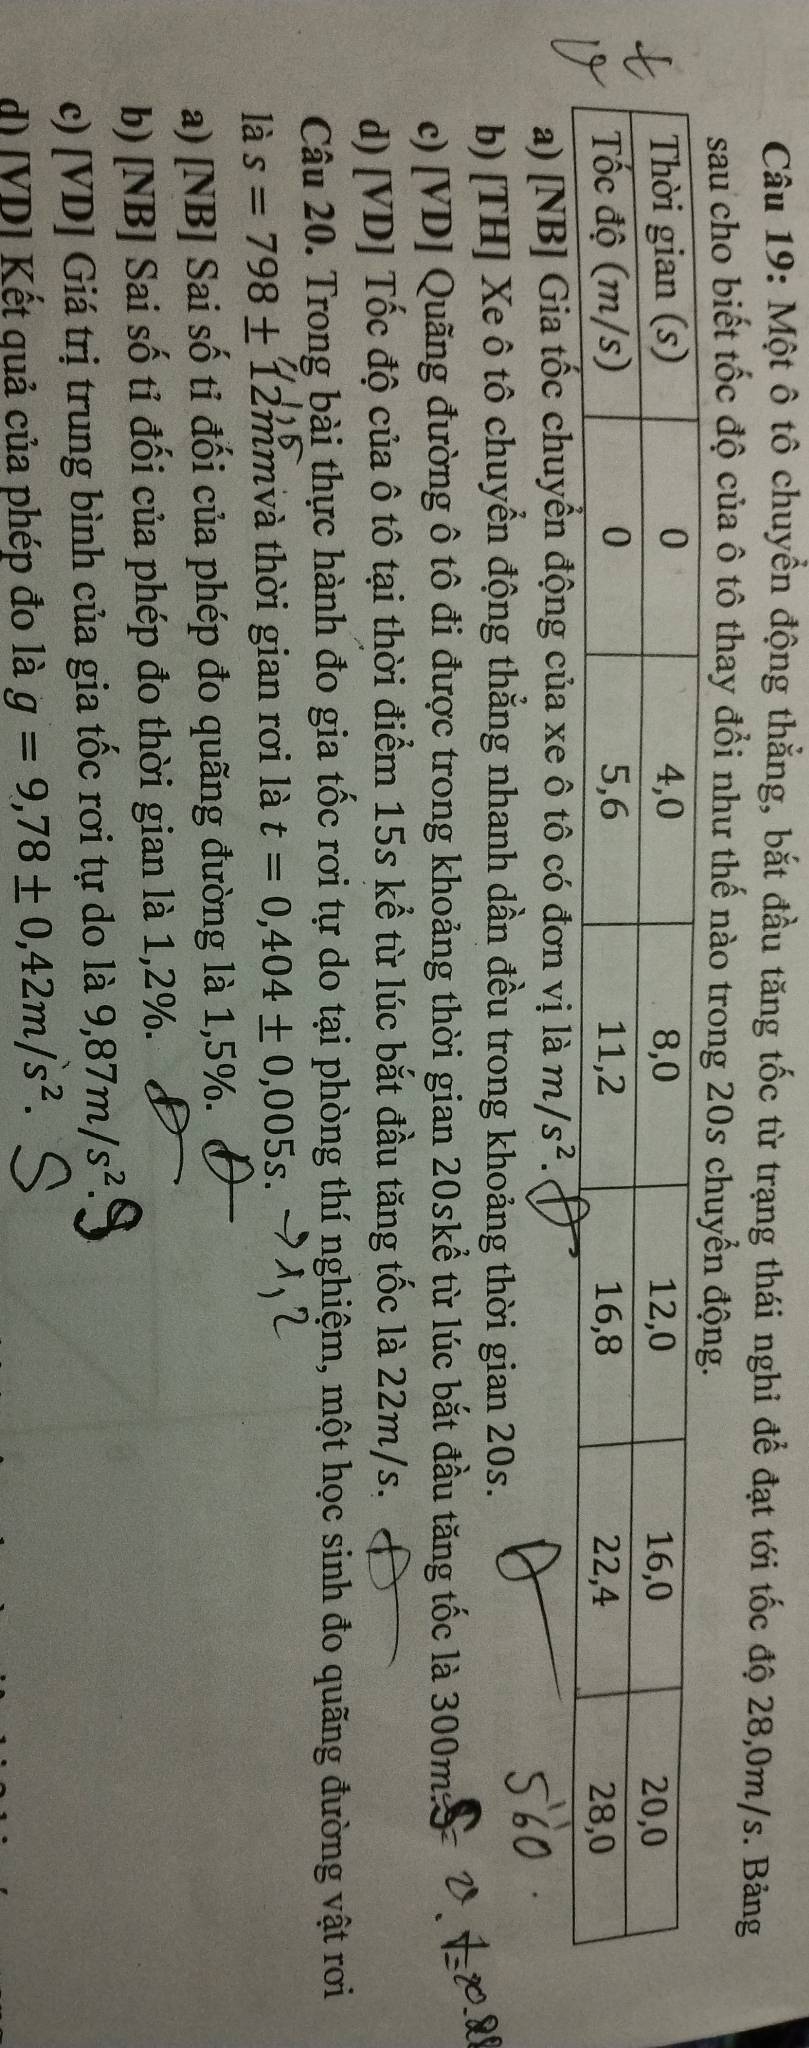 Câu 19: Một ô tô chuyển động thẳng, bắt đầu tăng tốc từ trạng thái nghỉ để đạt tới tốc độ 28,0m/s. Bảng
sau cho biết tốc độ của ô tô thay đổi như thế nào trong 20s chuyển động.
t Thời gian (s) 0 4,0 8,0 12,0 16,0 20,0
v Tốc độ (m/s) 0 5,6 11,2 16,8 22,4 28,0
a) [NB] Gia tốc chuyển động của xe ô tô có đơn vị là m/s². Đ
b) [TH] Xe ô tô chuyển động thẳng nhanh dần đều trong khoảng thời gian 20s. Đ 560.
c) [VD] Quãng đường ô tô đi được trong khoảng thời gian 20skể từ lúc bắt đầu tăng tốc là 300m. S = v.t=
d) [VD] Tốc độ của ô tô tại thời điểm 15s kể từ lúc bắt đầu tăng tốc là 22m/s. Đ
Câu 20. Trong bài thực hành đo gia tốc rơi tự do tại phòng thí nghiệm, một học sinh đo quãng đường vật rơi
là s = 798 ± 12mmvà thời gian rơi là t = 0,404 ± 0,005s. → 1,2
1,5
a) [NB] Sai số tỉ đối của phép đo quãng đường là 1,5%. Đ
b) [NB] Sai số tỉ đối của phép đo thời gian là 1,2%. Đ
c) [VD] Giá trị trung bình của gia tốc rơi tự do là 9,87m/s². S
d) [VD] Kết quả của phép đo là g = 9,78 ± 0,42m/s². S